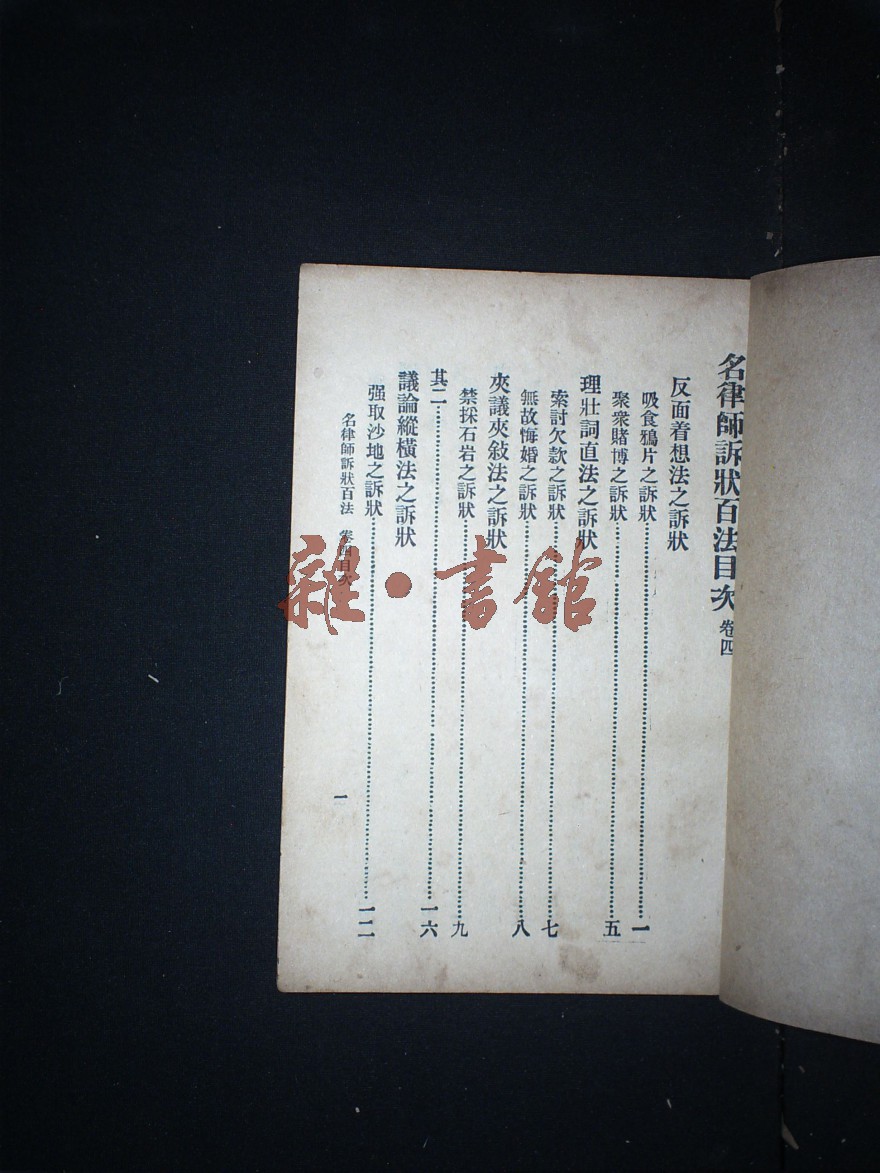 名律師訴狀百法目次 卷四
反面着想法之訴狀
吸食鴉片之訴狀……一
聚衆賭博之訴狀……五
理壯詞直法之訴狀
索討欠款之訴狀……七
無故悔婚之訴狀……八
夾議夾敍法之訴狀
禁採石岩之訴狀……九
其二……一六
議論縱橫法之訴狀
强取沙地之訴狀……
名律師訴狀百法 卷四目次
一
雜·書館